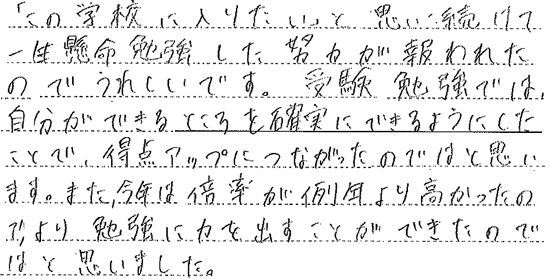 「この学校に入りたい」と思い続けて
一生懸命勉強した努力が報われた
のでうれしいです。受験勉強では、
自分ができるところを確実にできるようにした
ことで、得点アップにつながったのではと思い
ます。また、今年は倍率が例年より高かったの
で、より勉強に力を出すことができたので
はと思いました。